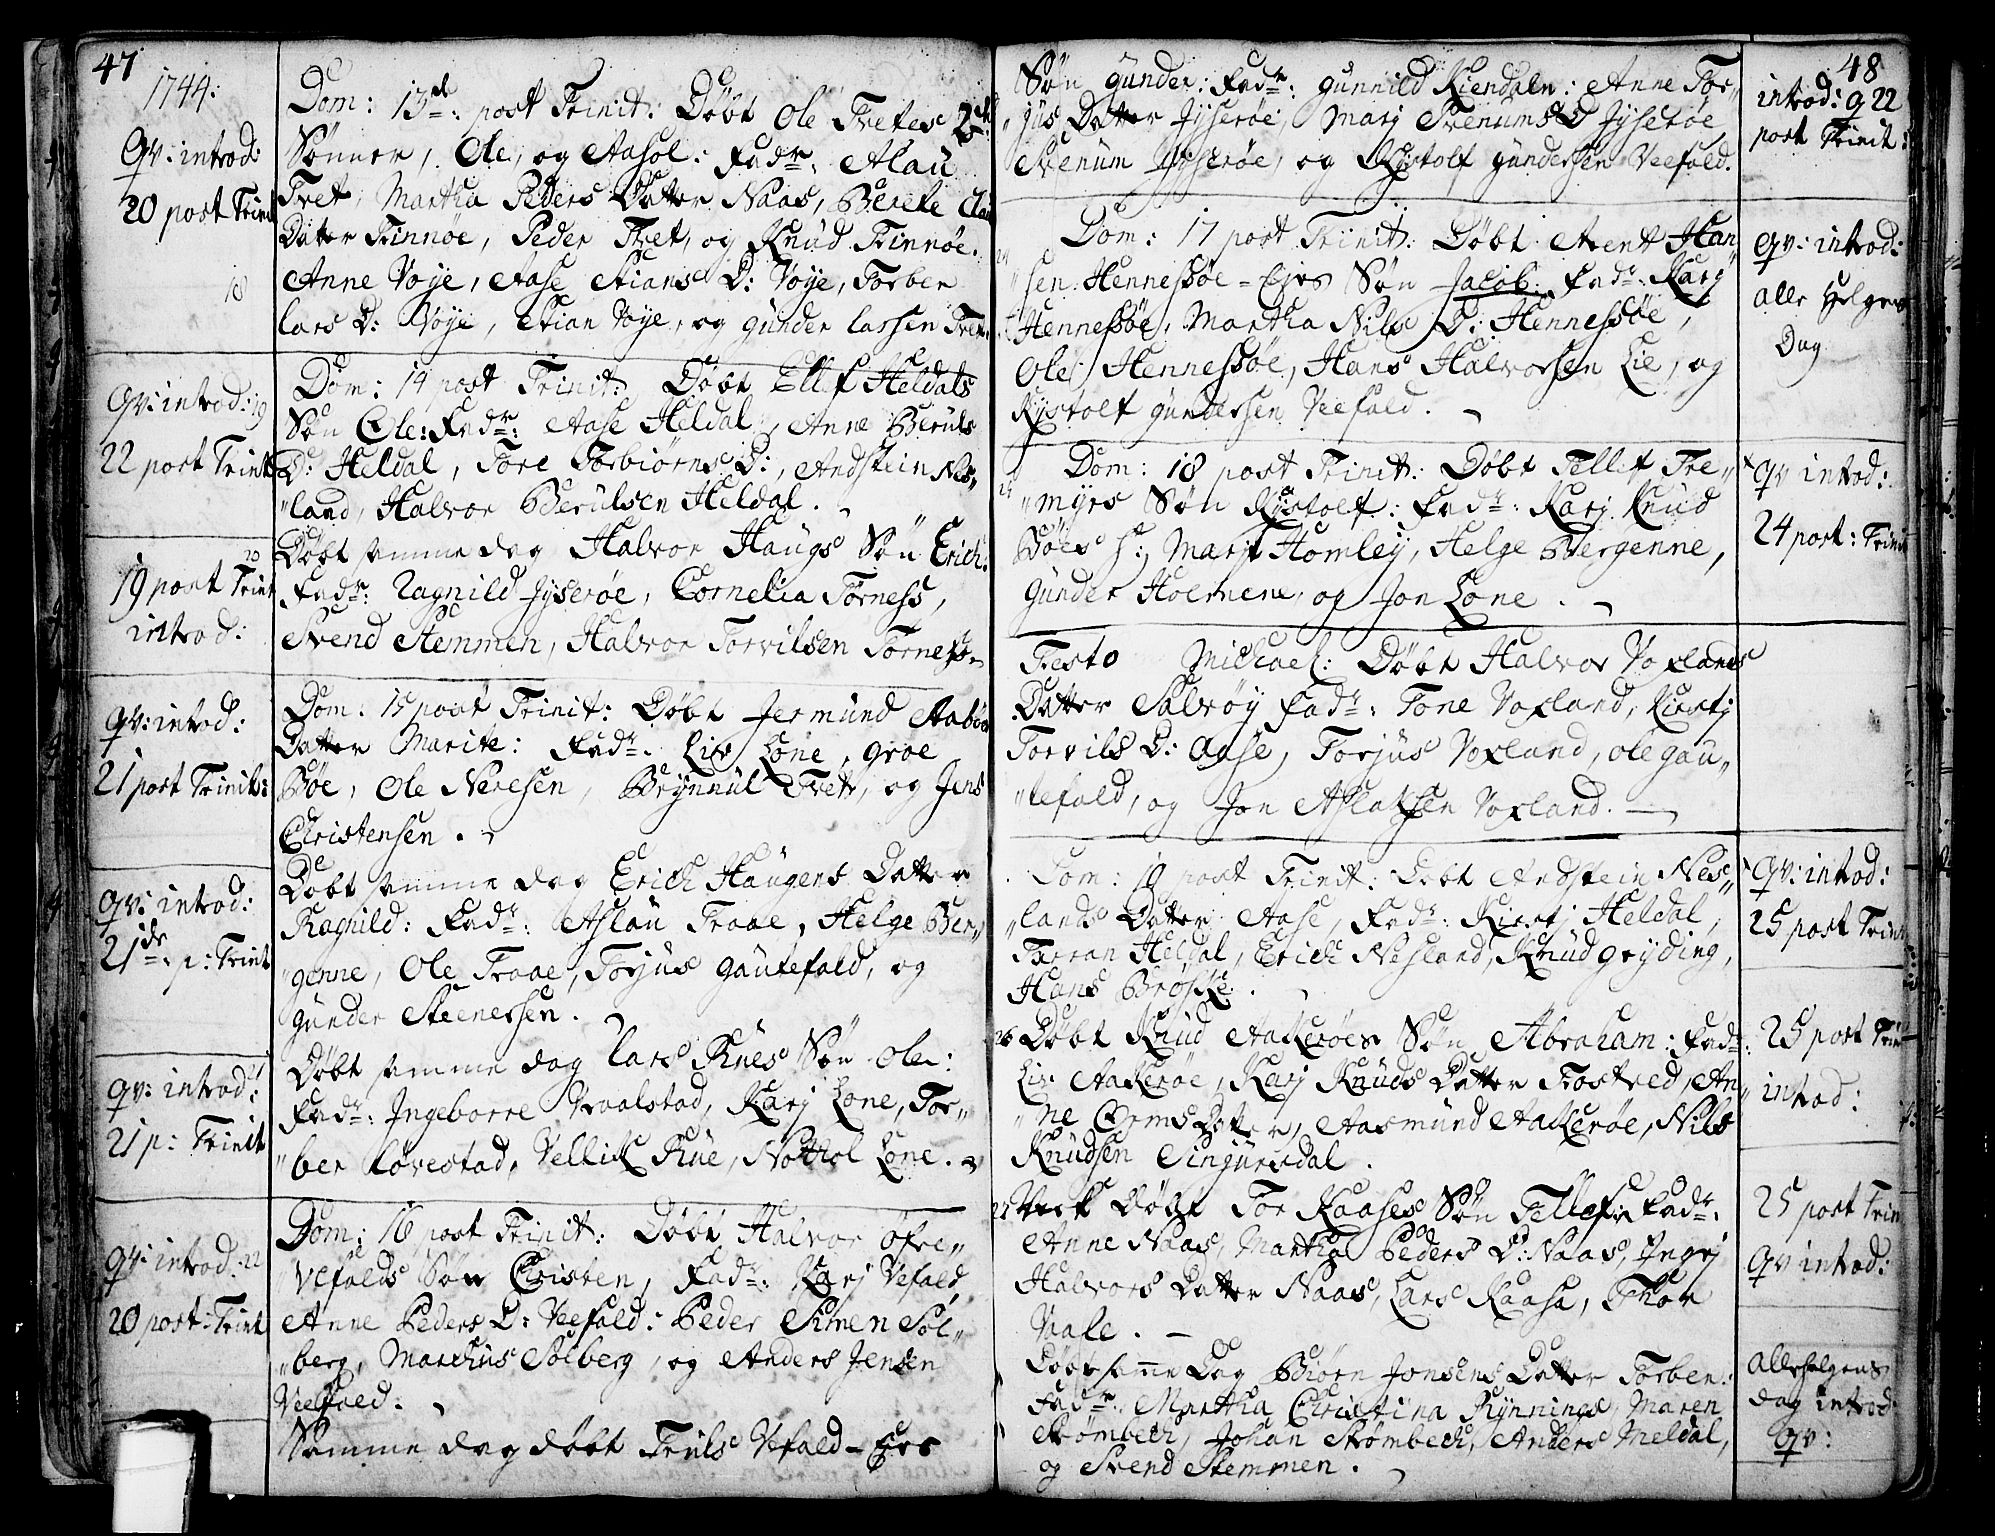 47
1744:
Qv: introd:
20 post Trinit
18
Qv: introd: 19
22 post Trinit
20
19 post Trinit
introd:
Qv: introd:
21 post Trinit:
Qv: introd:
21de p: Trinit
21
Qv: introd:
21 p: Trinit
Qv: introd: 22
20 post: Trinit
Dom: 13de: post Trinit: Døbt Ole Tvetes 2de
Sønner, Ole, og Aasol: Fadr: Alau
Tvet, Martha Peders Datter Naas, Berete
Datter Finnøe, Peder Tvet, og Knud Finnøe.
Anne Voye, Aase Stians D: Voye, Torber
Lars D: Voye, Stian Voye, og Gunder Lassen
Dom: 14 post Trinit: Døbt Ellef Heldals
Søn Ole: Fadr: Aase Heldal, Anne Beruls
D: Heldal, Tore Torbiørns D:, Andstein Nes„
„land, Halvor Berulsen Heldal.
Døbt samme dag Halvor Haugs Søn Erich:
Fadr: Ragnild Jyserøe, Cornelia Torness,
Svend Stemmen, Halvor Torvilsen Torness
Dom: 15 post Trinit: Døbt Jermund Aabøes
Datter Marite: Fadr: Liv Lone, Groe
Bøe, Ole Neresen, Brynnul Tvet, og Jens
Christensen.
Døbt samme dag Erich Haugens Datter
Ragnild: Fadr: Aslau Traae, Helge Ber„
„genne, Ole Traae, Torjus Gautefald, og
Gunder Steenersen.
Døbt samme dag Lars Rues Søn Ole:
Fadr: Ingeborre Vraalstad, Karj Lone, Tor„
„ber Lovestad, Vellik Rue, Nottol Lone.
Dom: 16 post Trinit: Døbt Halvor Øfre„
„Vefalds Søn Christen, Fadr: Karj Vefald,
Anne Peders D: Veefald: Peder Simen Sol„
„berg, Marchus Solberg, og Anders Jensen
Veefald:
Samme dag døbt Truls Vefald-Eies
Søn Gunder: Fadr: Gunnild Kiendaln: Anne Tor„
„jus Datter Jyserøe, Marj Svenums D Jyserøe,
Svenum Jyserøe, og Kystolf Gundersen Veefald.
Dom: 17 post Trinit: Døbt Arent Han„
„sen Hennessøe-Eies Søn Jacob: Fadr: Karj
Hennessøe, Martha Nils D: Hennessøe,
Ole Hennessøe, Hans Halvorsen Lie, og
Kystolf Gundersen Veefald.
Dom: 18 post Trinit: Døbt Tellef Tre„
„myrs Søn Kystolf: Fadr: Karj Knud
Bøes H:, Marjt Homley, Helge Bergenne,
Gunder Holmene, og Jon Lone.
Festo Michael: Døbt Halvor Voxlands
Datter Salvøy Fadr: Tone Voxland, Kiertj
Torvils D: Aase, Torjus Voxland, Ole Gau„
„tefald, og Jon Aslaksen Voxland.
Dom: 19 post Trinit: Døbt Andstein Nes„
„lands Datter Aase, Fadr: Kiertj Heldal,
Tarran Heldal, Erich Nesland, Knud Gryding,
Hans Brøkke.
26 Døbt Knud Aakerøes Søn Abraham: Fadr:
Liv Aakerøe, Karj Knuds Datter Fostved, An„
„ne Orms Datter, Aasmund Aakerøe, Nils
Knudsen Singursdal.
27 Døbt Tor Raases Søn Tellef: Fadr:
Anne Naas, Martha Peders D: Naas, Ingrj
Halvors Datter Naas, Lars Raasa, Thor
Vaale.
Døbt same Dag Biørn Jonsens Datter Torber:
Fadr: Martha Christina Rynning, Maren
Strømbech, Johan Strømbech, Anders Meldal,
og Svend Stemmen.
48
introd: Q 22
post Trinit:
Qv: introd:
alle Helgens
Dag
Qv introd:
24 post: Trinit
Qv: introd:
25 post Trinit
25 post Trin
introd:
25 post Trin
Qv introd:
Allehelgens
dag introd:
Qv: